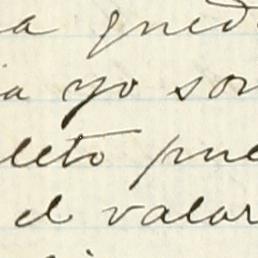 a qued
a yo son
leto pue
el valor